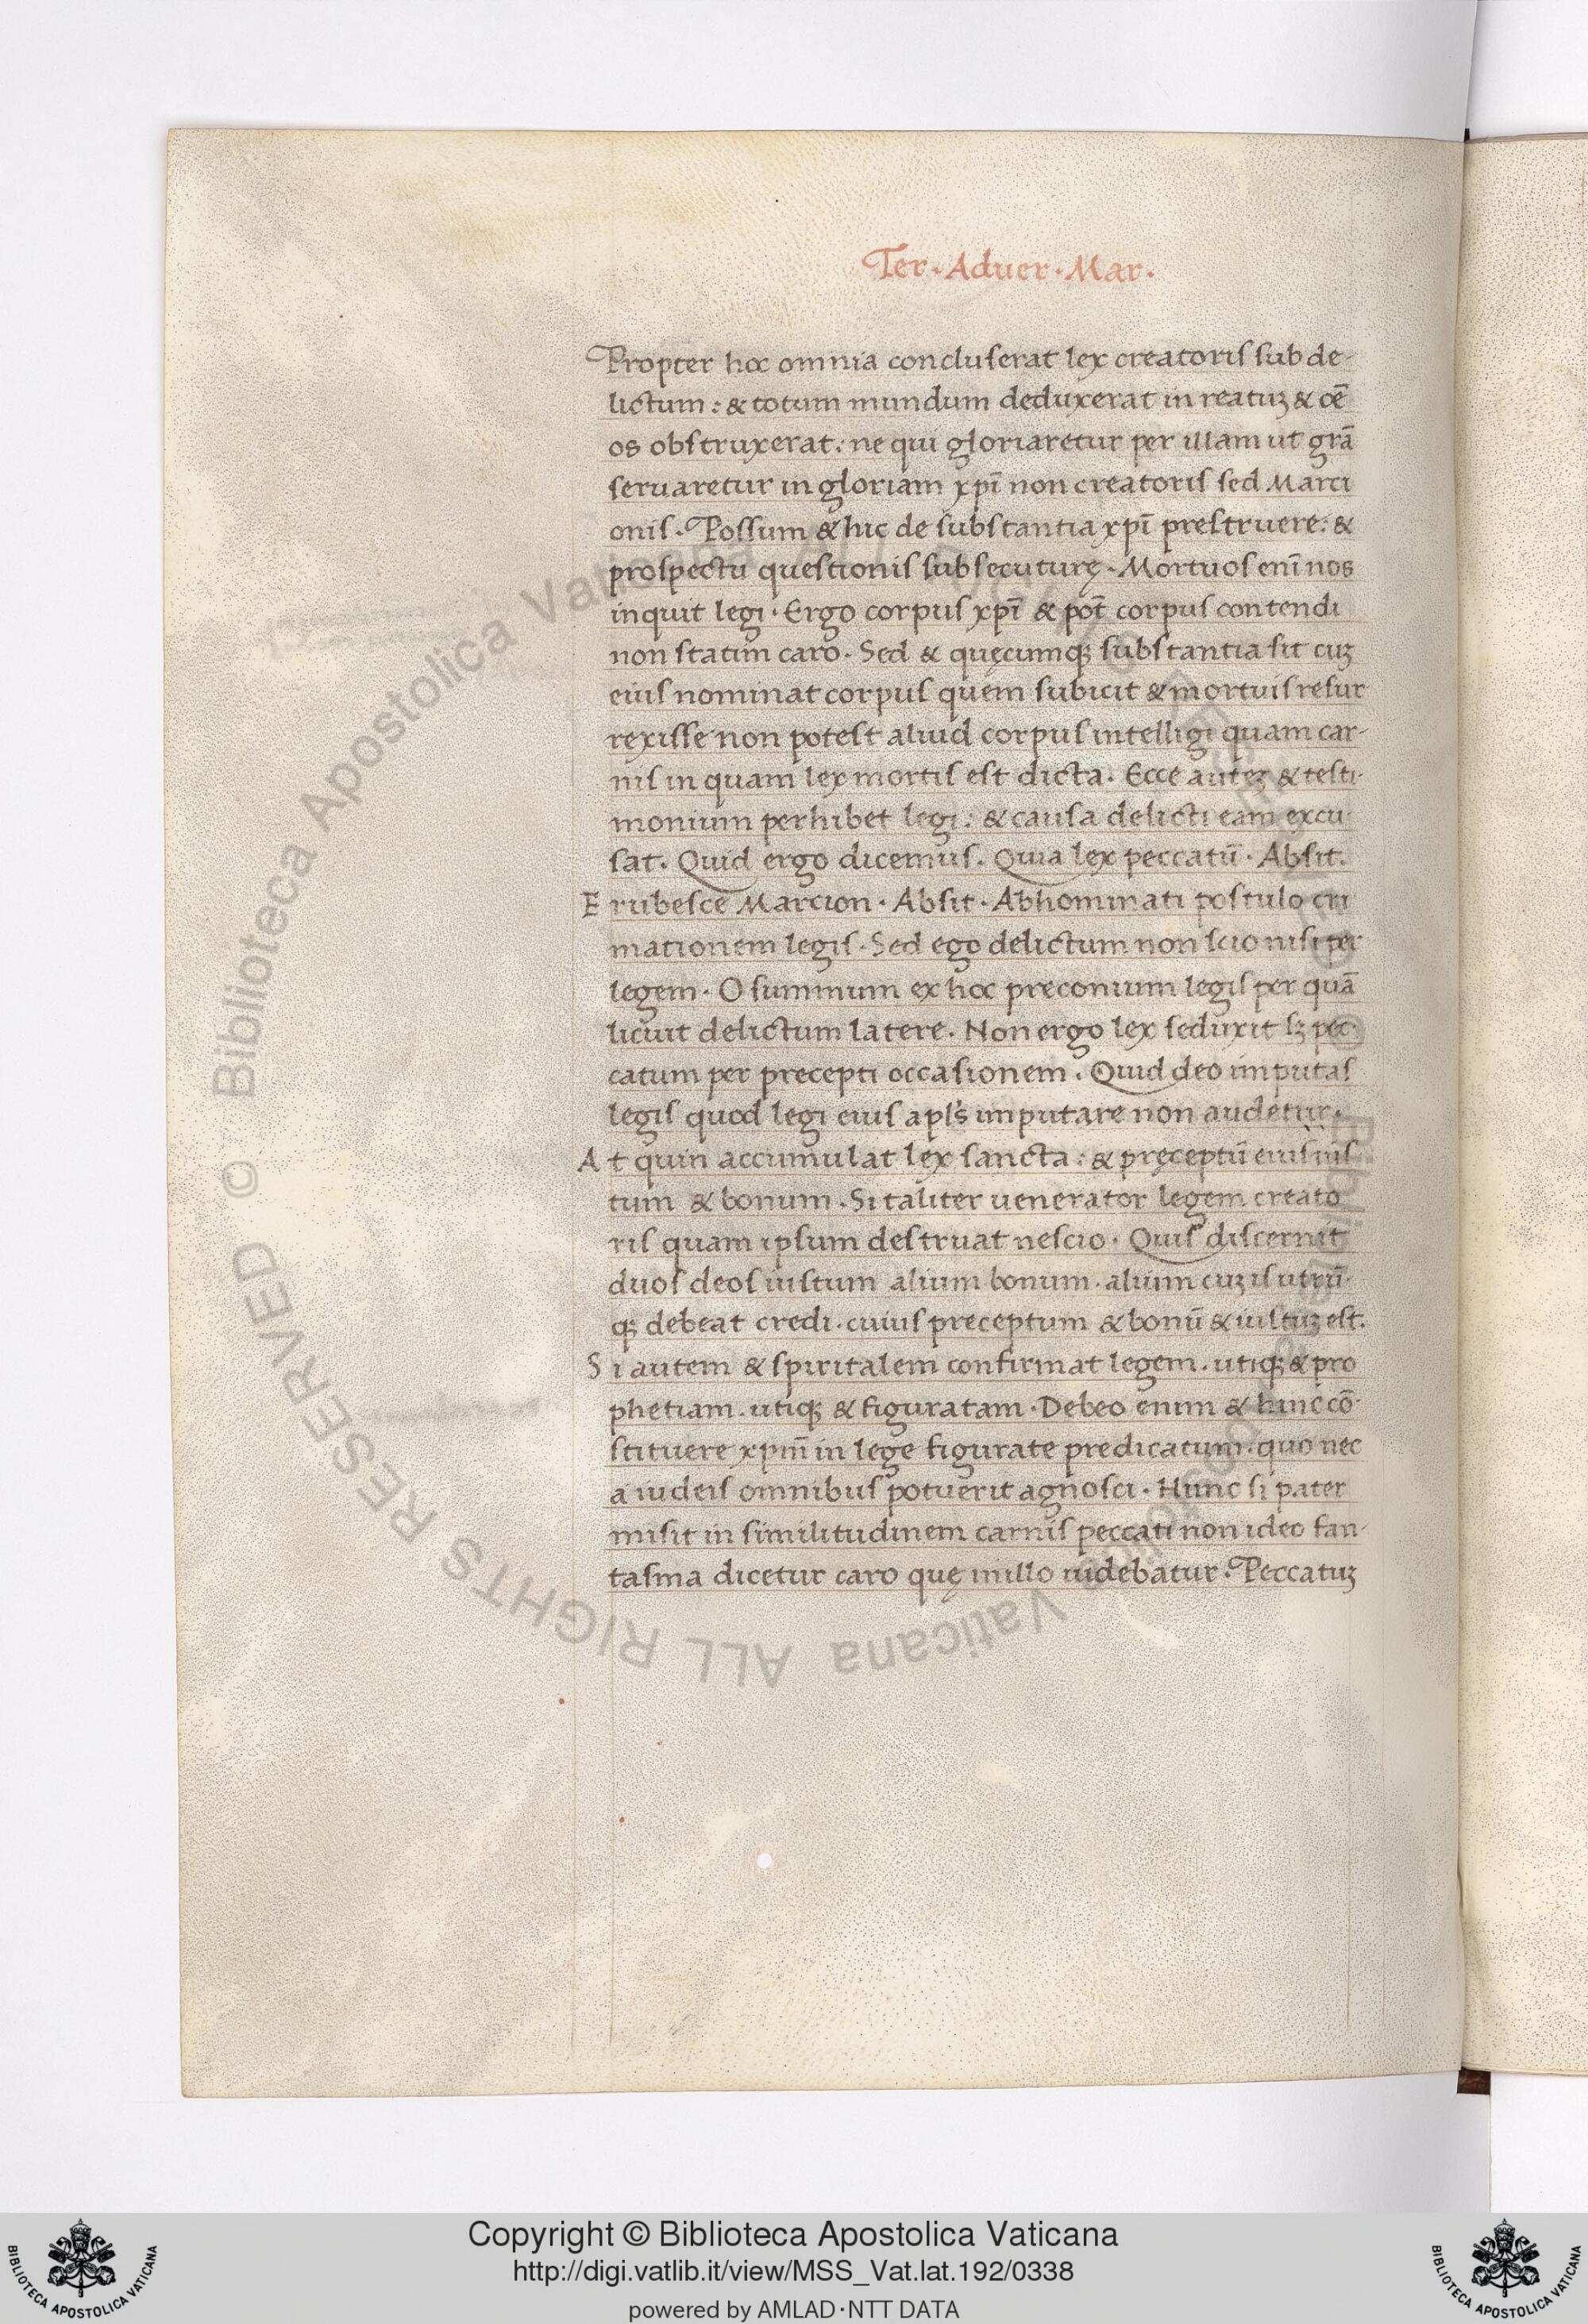 Ter · Aduer · Mar ·
Propter hoc omnia concluserat lex creatoris sub de-
lictum : & totum mundum deduxerat in reatuȝ & oē
os obstruxerat : ne qui gloriaretur per illam ut grã
seruaretur in gloriam xpī non creatoris sed Marci
onis · Possum & hic de substantia xpī prestruere : &
prospectu questionis subsecuturę · Mortuos enī nos
inquit legi · Ergo corpus xpī & pōt corpus contendi
non statim caro · Sed & quęcumqȝ substantia sit cuȝ
eius nominat corpus quem subicit & mortuis resur
rexisse non potest aliud corpus intelligi quam car-
nis in quam lex mortis est dicta · Ecce auteȝ & testi-
monium perhibet legi : & causa delicti eam excu-
sat . Quid ergo dicemus . Quia lex peccatū · Absit .
Erubesce Marcion · Absit · Abhominati postulo cri
mationem legis · Sed ego delictum non scio nisi per
legem · O summum ex hoc preconium legis per quã
licuit delictum latere · Non ergo lex seduxit sȝ pec-
catum per precepti occasionem . Quid deo imputas
legis quod legi eius apl's imputare non audetur ·
At quin accumulat lex sancta : & pręceptū eius ius
tum & bonum · Si taliter uenerator legem creato
ris quam ipsum destruat nescio · Quis discernit
duos deos iustum alium bonum · alium cuȝ is utrū-
qȝ debeat credi . cuius preceptum & bonū & iustuȝ est .
Si autem & spiritalem confirmat legem . utiqȝ & pro
phetiam . utiqȝ & figuratam · Debeo enim & hinc cō-
stituere xpm̄ in lege figurate predicatum . quo nec
a iudeis omnibus potuerit agnosci · Hunc si pater
misit in similitudinem carnis peccati non ideo fan-
tasma dicetur caro quę in illo uidebatur · Peccatuȝ
© Biblioteca Apostolica Vaticana ALL RIGHTS RESERVED © Biblioteca Apostolica Vaticana ALL RIGHTS RESERVED
Copyright © Biblioteca Apostolica Vaticana
http://digi.vatlib.it/view/MSS_Vat.lat.192/0338
powered by AMLAD·NTT DATA
BIBLIOTECA APOSTOLICA VATICANA
BIBLIOTECA APOSTOLICA VATICANA